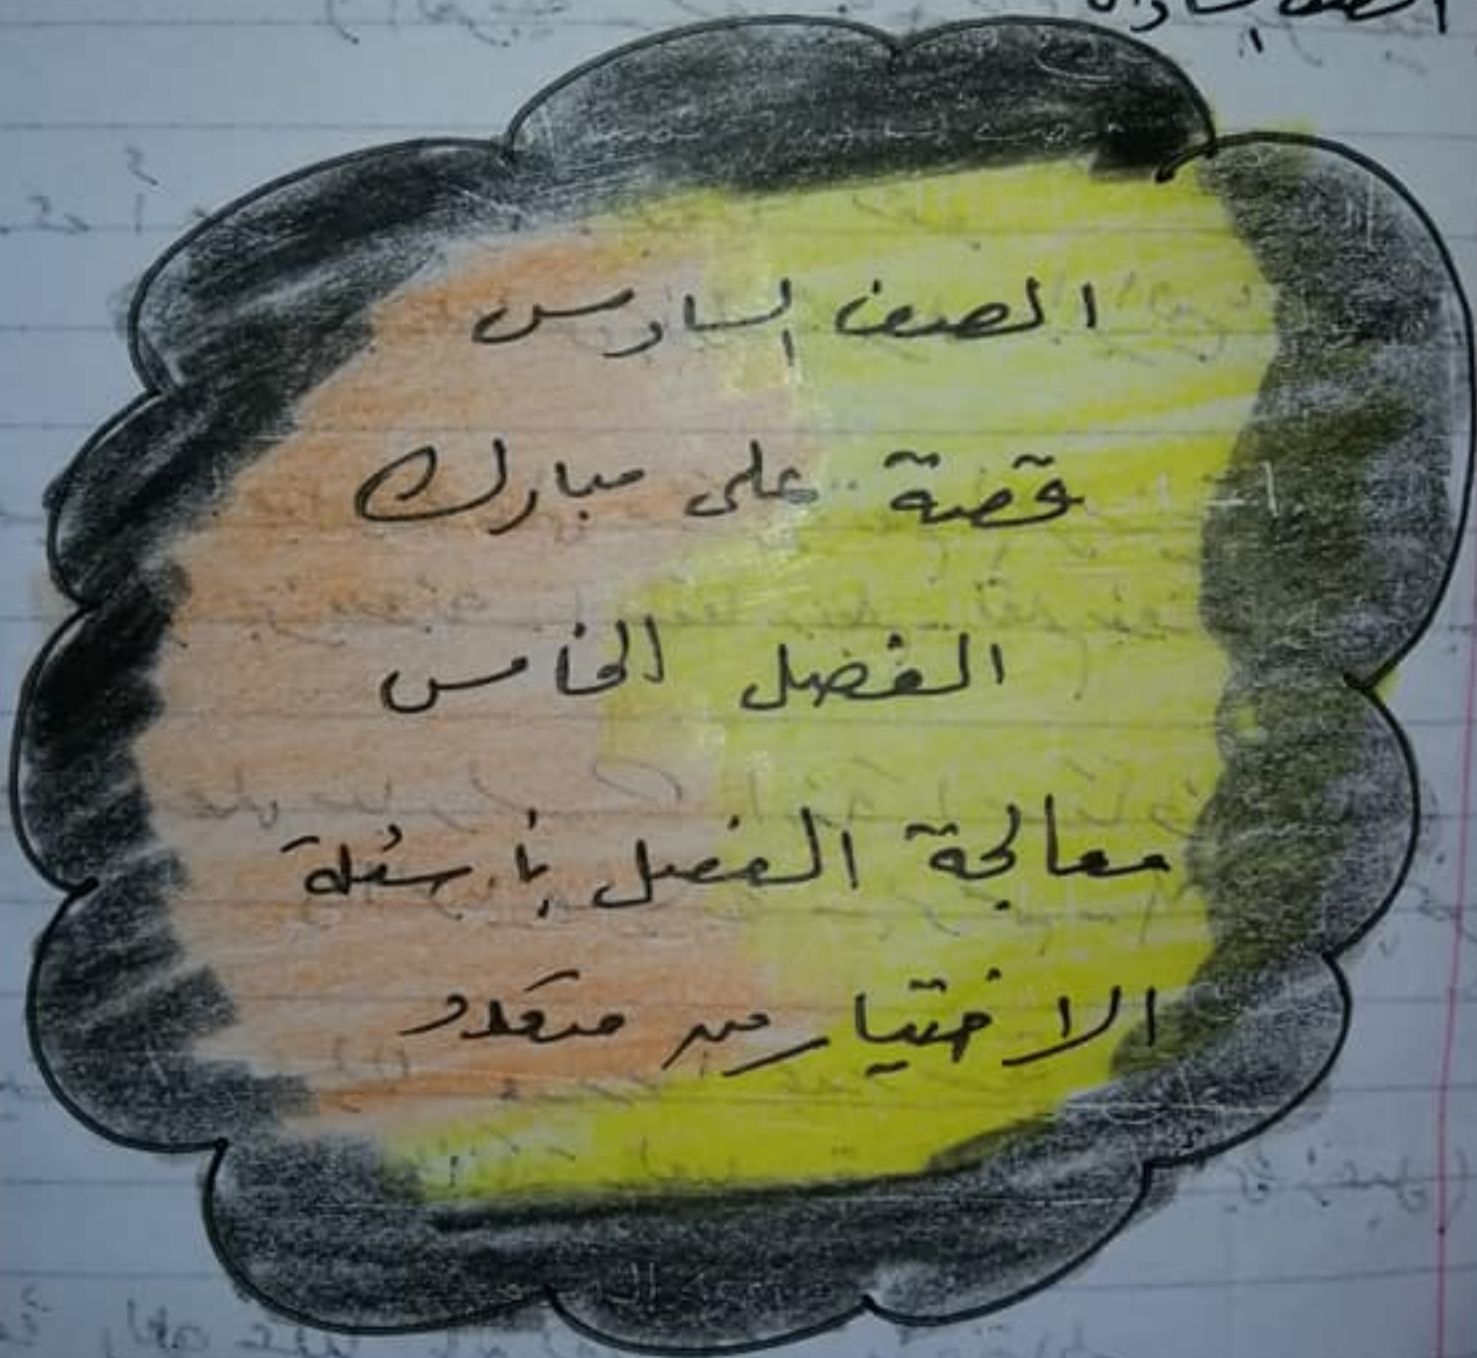 الصف السادس
الصف السادس
قصة على مبارك
الفصل الخامس
معالجة الفصل بأسئلة
الاختيار من متعدد